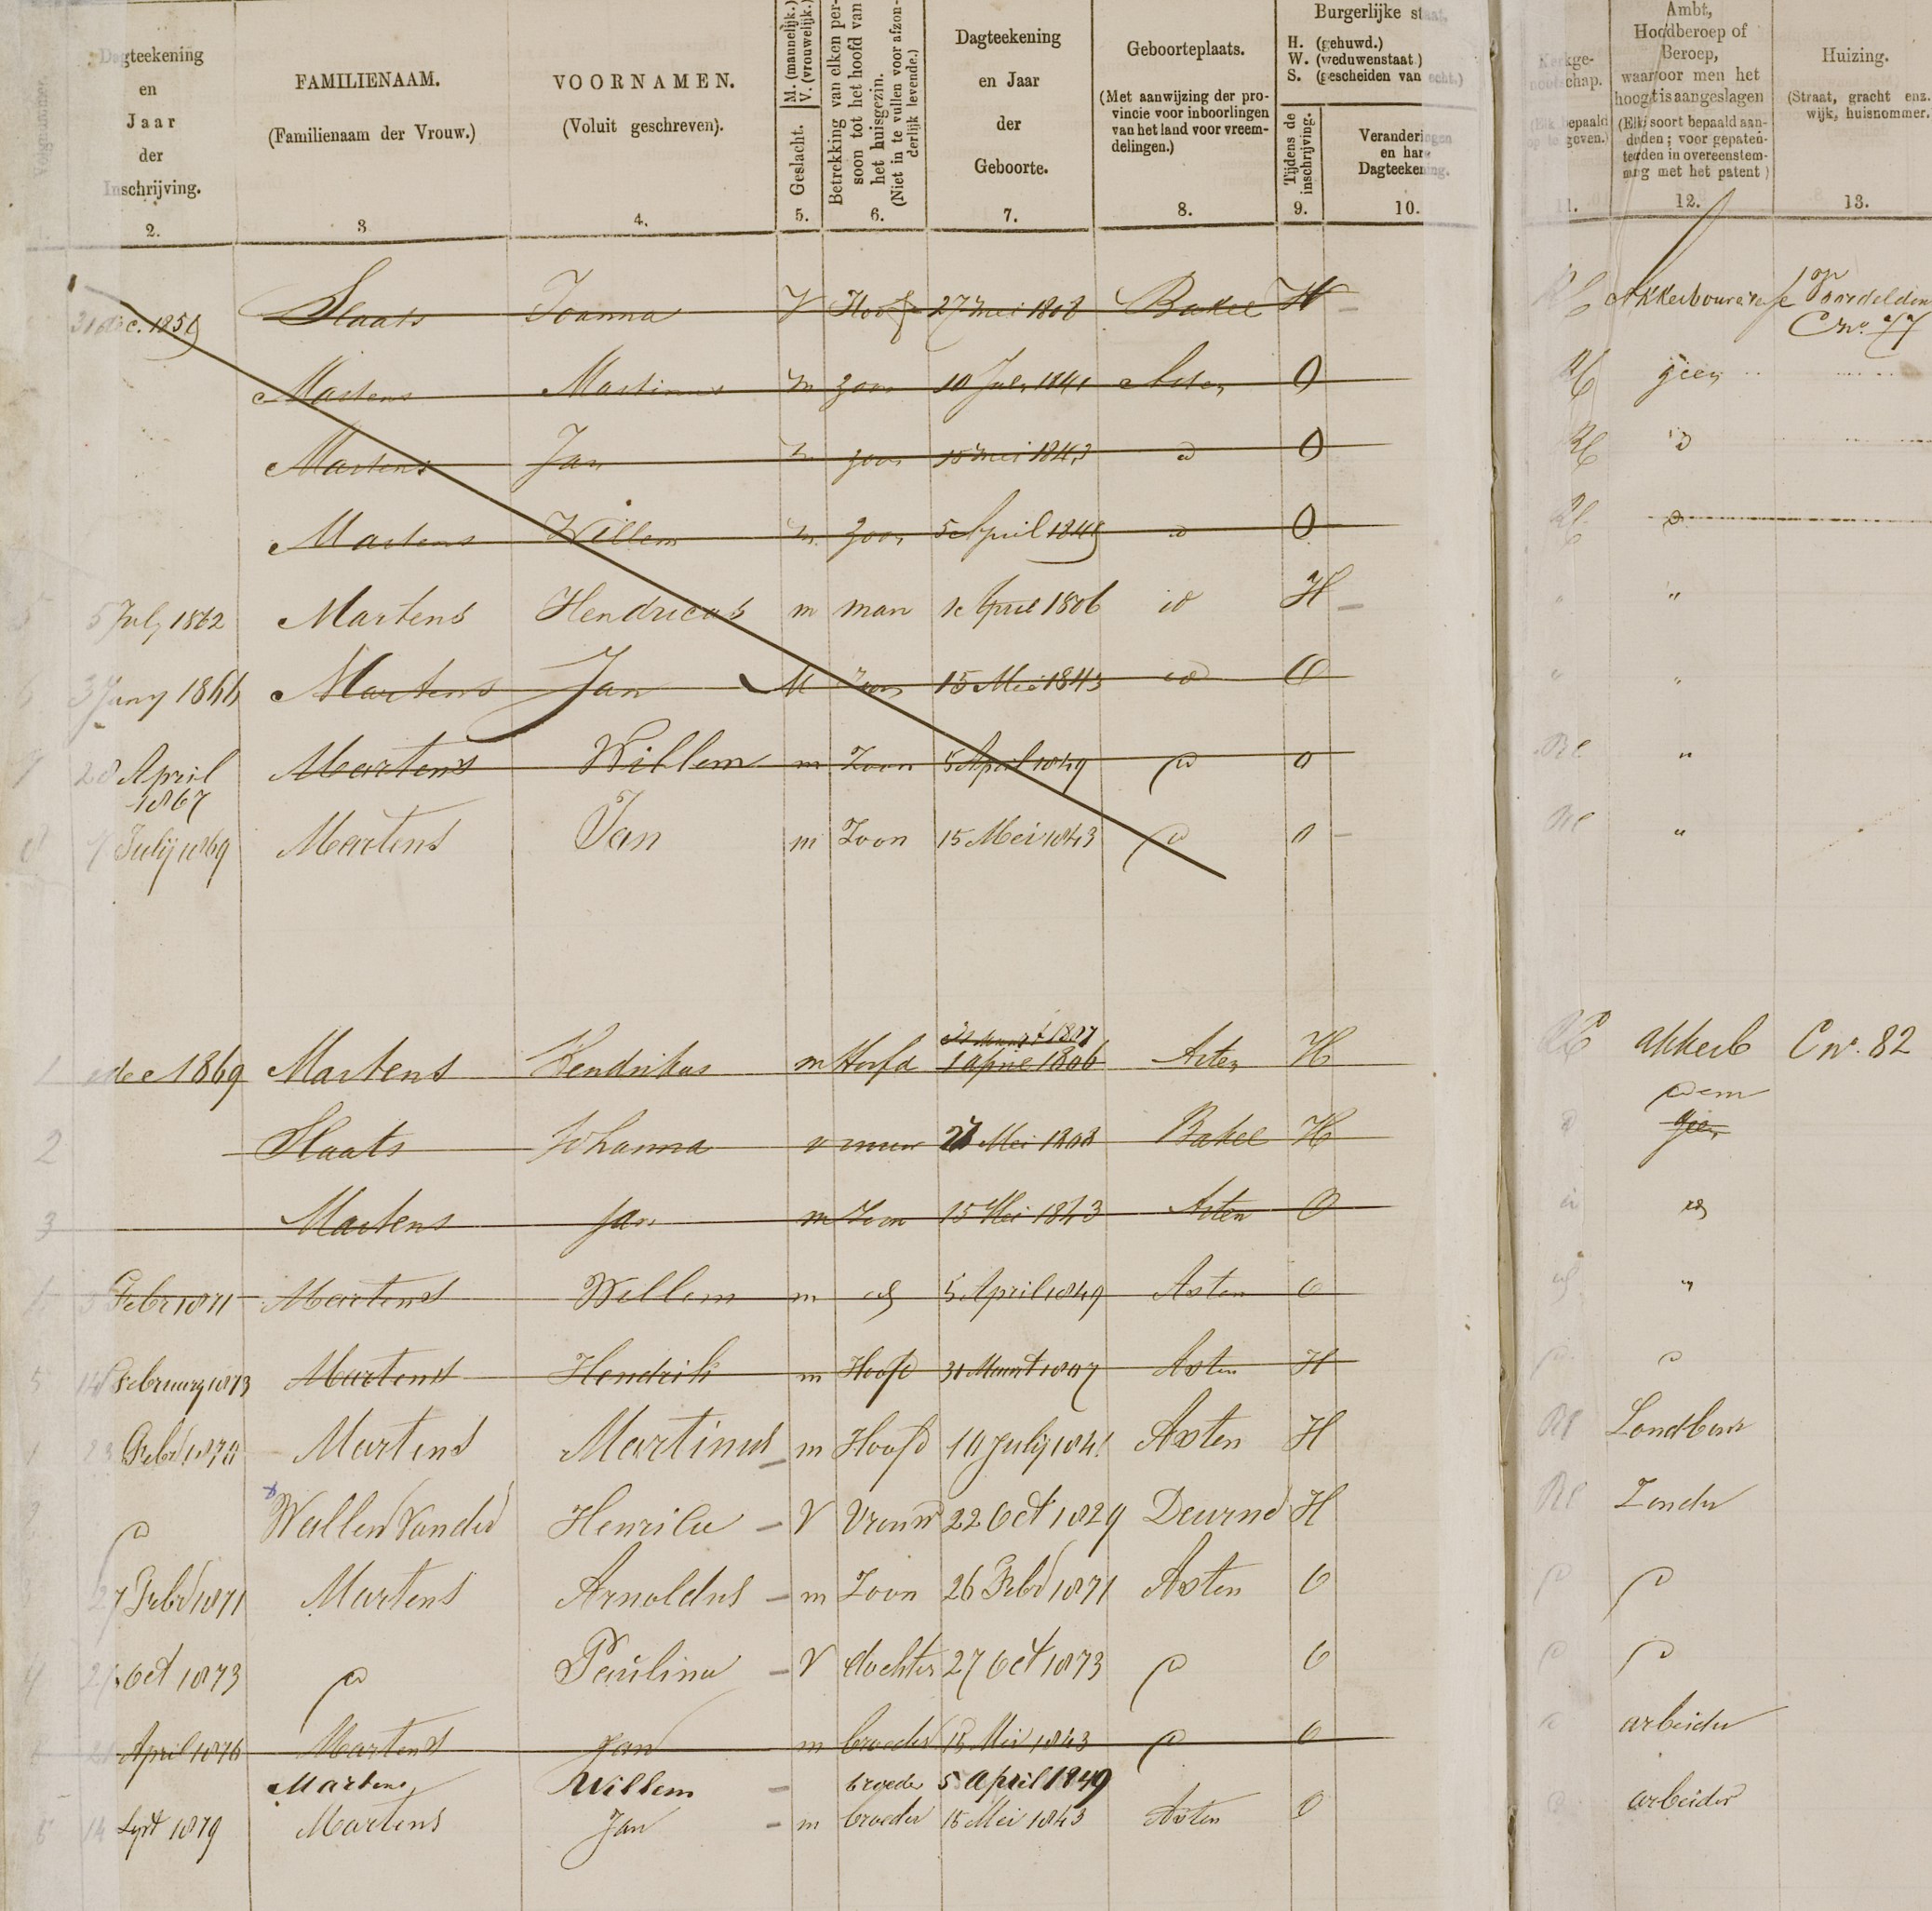 Volgnummer.
Dagteekening
en
Jaar
der
Inschrijving.
2.
FAMILIENAAM.
(Familienaam der Vrouw.)
3
VOORNAMEN.
(Voluit geschreven).
4.
M. (mannelijk.)
V. (vrouwelijk.)
Geslacht.
5.
Betrekking van elken per-
soon tot het hoofd van
het huisgezin.
(Niet in te vullen voor afzon-
derlijk levende.)
6.
Dagteekening
en Jaar
der
Geboorte.
7.
Geboorteplaats.
(Met aanwijzing der pro-
vincie voor inboorlingen
van het land voor vreem-
delingen.)
8.
Burgerlijke staat.
H. (gehuwd.)
W. (weduwenstaat)
S. (gescheiden van echt.)
Tijdens de
inschrijving.
9.
Veranderingen
en hare
Dagteekening.
10.
Kerkge-
nootschap.
(Elk bepaald
op te geven.)
11.
Ambt,
Hoofdberoep of
Beroep,
waarvoor men het
hoogst is aangeslagen
(Elk soort bepaald aan-
duiden; voor gepaten-
teerden in overeenstem-
ming met het patent)
12.
Huizing.
(Straat, gracht enz.
wijk, huisnommer.
13.
31 dec. 1859 Slaats Joanna V Hoofd 27 mei 1808 Bakel H RC Akkerbouwerse op Voordeldonk
C no. 77
Martens Martinus m zoon 10 July 1841 Asten O RC geen
Martens Jan m zoon 15 mei 1843 d O RC id
Martens Willem m zoon 5 April 1849 d O RC d
5 July 1862 Martens Hendricus m man 1e April 1806 id H "
6 3 Juny 1866 Martens Jan M Zoon 15 Mei 1843 id O "
7 28 April 1867 Martens Willem m Zoon 5 April 1849 d O RC "
8 July 1869 Martens Jan m Zoon 15 Mei 1843 d O RC "
31 maart 1807
1 dec 1869 Martens Hendrikus m Hoofd 1 april 1806 Asten H RC akkerb C no. 82
idem
2 Slaats Johanna v vrouw 27 Mei 1808 Bakel H d geen
3 Martens Jan m Zoon 15 Mei 1843 Asten O id id
Febr 1871 Martens Willem m id 5 April 1849 Asten O id "
5 14 February 1873 Martens Hendrik m Hoofd 31 Maart 1807 Asten H d d
1 23 Febr 1870 Martens Martinus m Hoofd 10 July 1841 Asten H RC Landbouwer
2 d Wallen Van der Henrica V Vrouw 22 Oct 1829 Deurne H RC Zonder
3 27 Febr 1871 Martens Arnoldus m Zoon 26 Febr 1871 Asten O d d
4 27 Oct 1873 d Paulina V dochter 27 Oct 1873 d O d d
21 April 1876 Martens Jan m broeder 15 Mei 1843 d O d arbeider
Martens Willem broeder 5 april 1849
14 Sept 1879 Martens Jan m broeder 15 Mei 1843 Asten O d arbeider